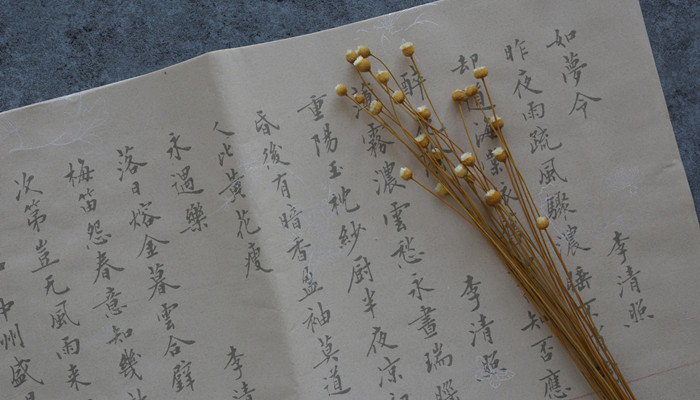 如夢令 李清照
昨夜雨疏風驟濃睡不
却道海棠依 知否應
醉 李清照
薄霧濃雲愁永晝瑞腦
重陽玉枕紗厨半夜凉初
昏後有暗香盈袖莫道
人比黄花瘦
永遇樂 李清
落日熔金暮雲合璧
梅笛怨春意知幾
次第豈无風雨来
中州盛